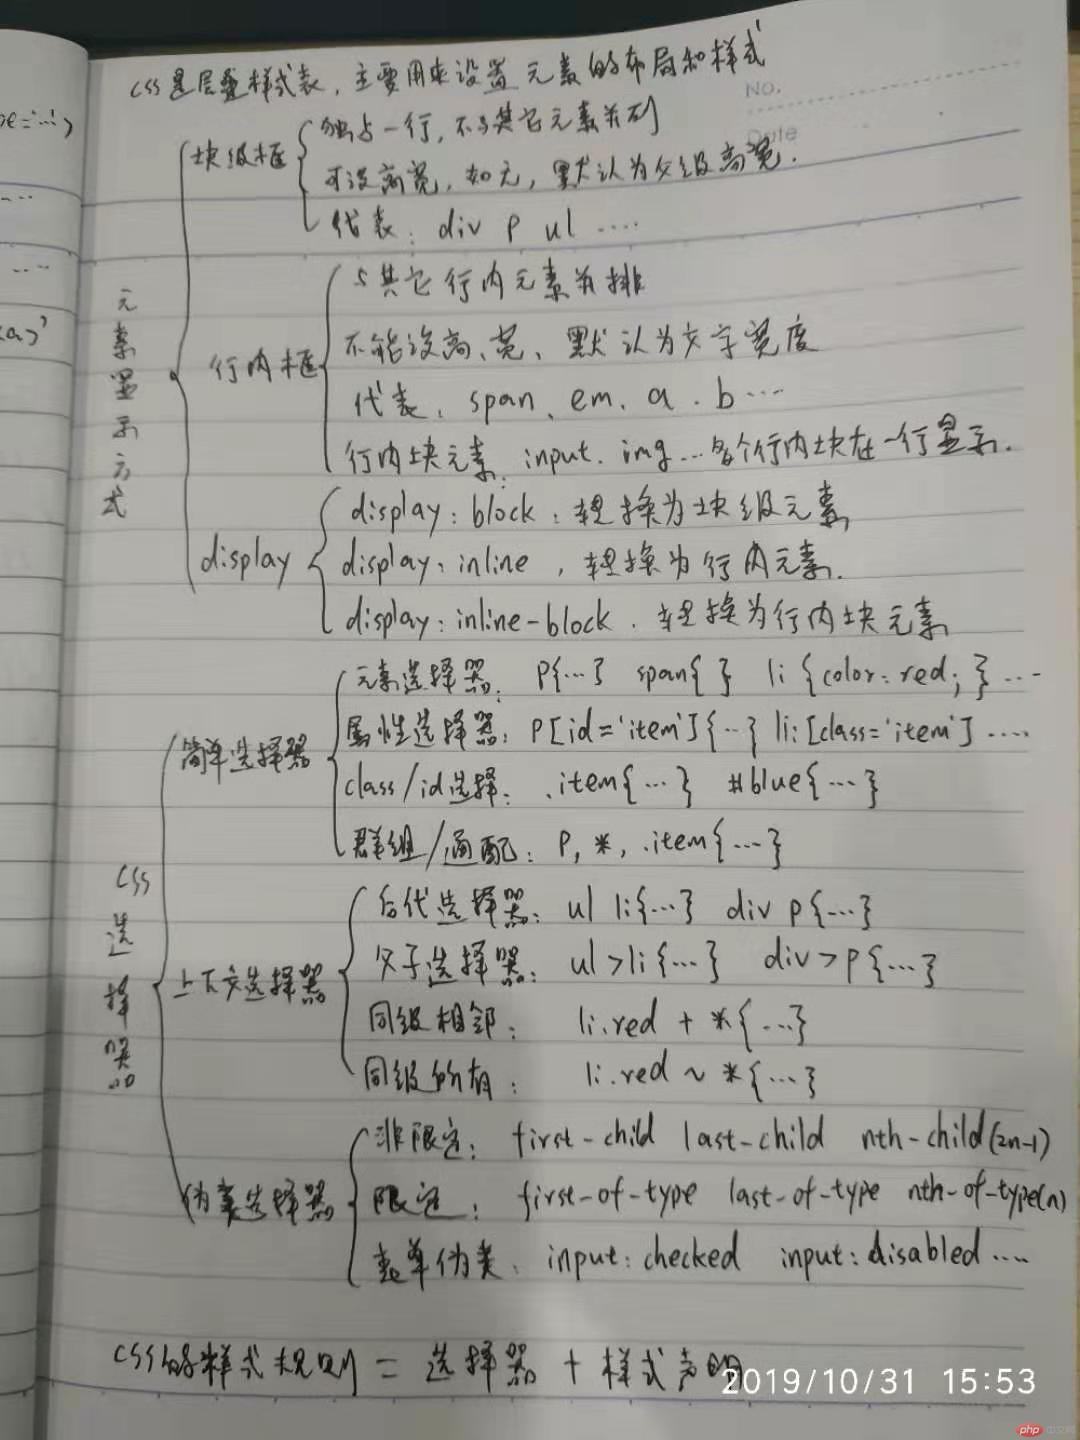 css是层叠样式表，主要用来设置元素的布局和样式
No.
Date
元素显示方式
块级框
独占一行，不与其它元素并列
可设高宽，如无，默认为父级高宽.
代表: div p ul ....
行内框
与其它行内元素并排
不能设高、宽、默认为文字宽度
代表、span、em、a . b ....
行内块元素: input. img... 多个行内块在一行显示.
display
display: block: 转换为块级元素
display: inline , 转换为行内元素.
display: inline-block . 转换为行内块元素
css选择器
简单选择器
元素选择器: p{...} span{ } li {color: red; } ....
属性选择器: p[id='item']{...} li:[class='item'] ....
class/id选择: .item{...} #blue{...}
群组/通配: p, *, .item{...}
上下文选择器
后代选择器: ul li{...} div p{...}
父子选择器: ul>li{...} div>p{...}
同级相邻: li.red + *{...}
同级所有: li.red ~ *{...}
伪类选择器
非限定: first-child last-child nth-child(2n-1)
限定: first-of-type last-of-type nth-of-type(n)
表单伪类、input: checked input: disabled ....
css的样式规则 = 选择器 + 样式声明
2019/10/31 15:53
php